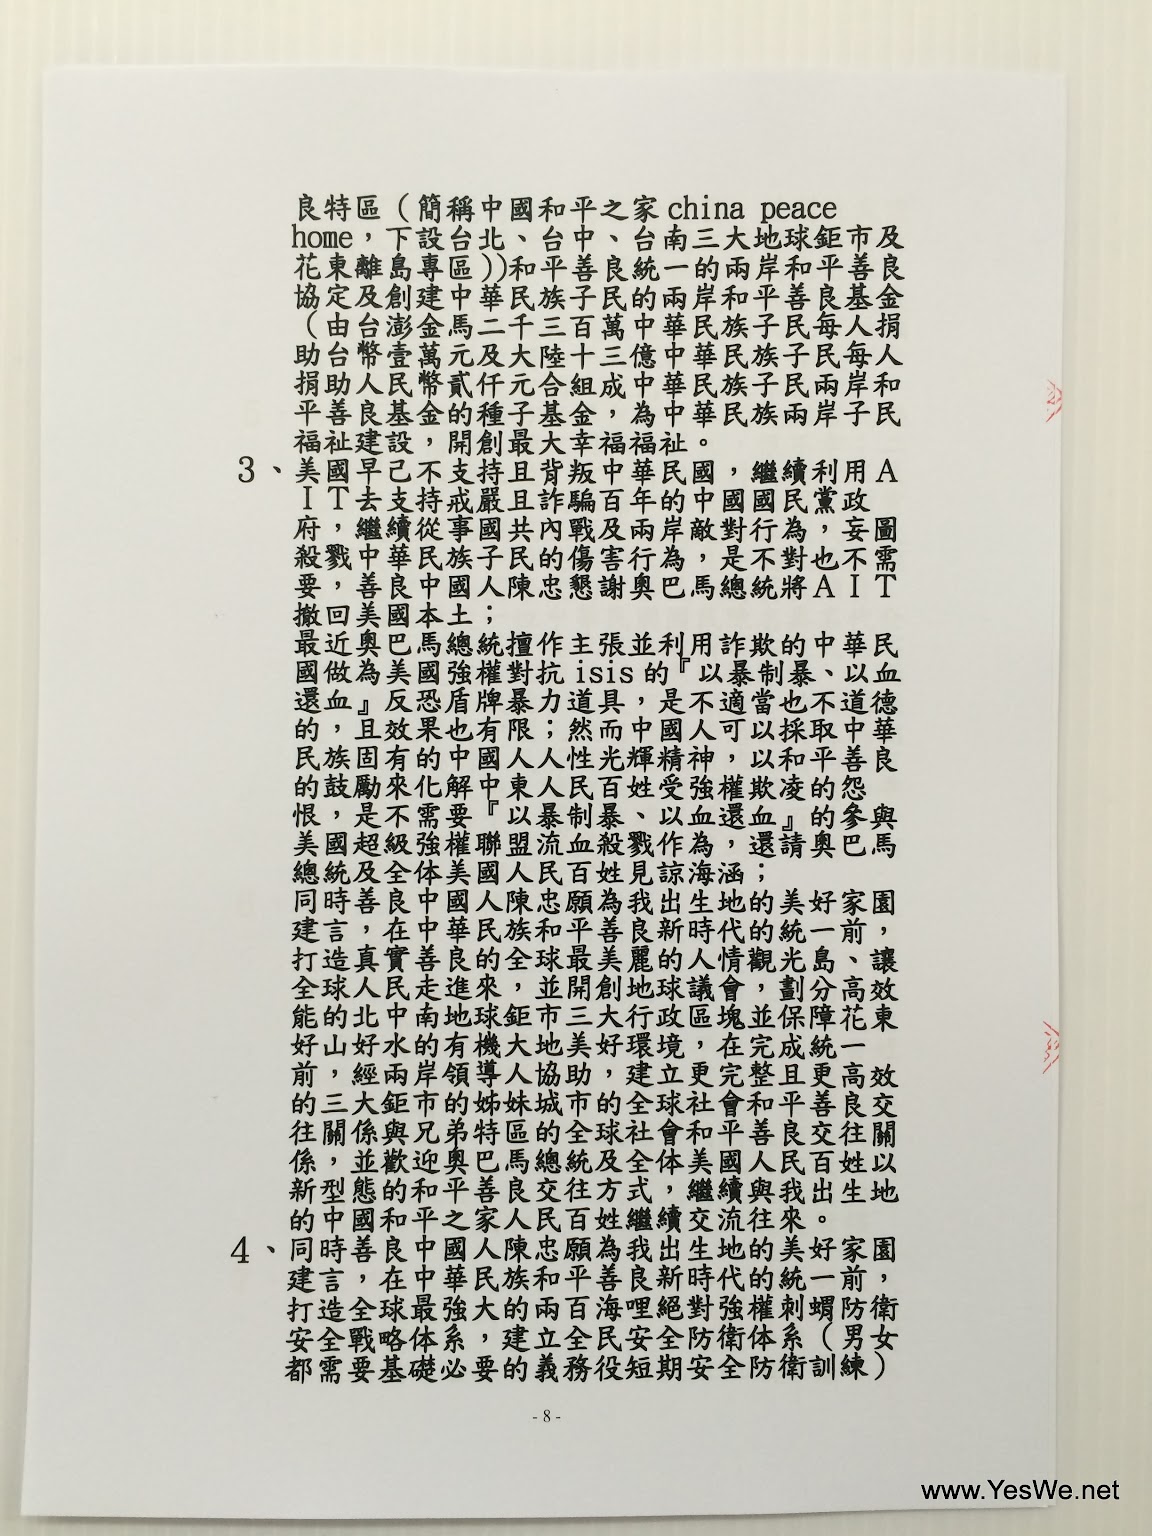 良特區（簡稱中國和平之家china peace
home，下設台北、台中、台南三大地球鉅市及
花東離島專區))和平善良統一的兩岸和平善良
協定及創建中華民族子民的兩岸和平善良基金
（由台澎金馬二千三百萬中華民族子民每人捐
助台幣壹萬元及大陸十三億中華民族子民每人
捐助人民幣貳仟元合組成中華民族子民兩岸和
平善良基金的種子基金，為中華民族兩岸子民
福祉建設，開創最大幸福福祉。
3、美國早已不支持且背叛中華民國，繼續利用Ａ
ＩＴ去支持戒嚴且詐騙百年的中國國民黨政
府，繼續從事國共內戰及兩岸敵對行為，妄圖
殺戮中華民族子民的傷害行為，是不對也不需
要，善良中國人陳忠懇謝奧巴馬總統將ＡＩＴ
撤回美國本土；
最近奧巴馬總統擅作主張並利用詐欺的中華民
國做為美國強權對抗isis的『以暴制暴、以血
還血』反恐盾牌暴力道具，是不適當也不道德
的，且效果也有限；然而中國人可以採取中華
民族固有的中國人人性光輝精神，以和平善良
的鼓勵來化解中東人民百姓受強權欺凌的怨
恨，是不需要『以暴制暴、以血還血』的參與
美國超級強權聯盟流血殺戮作為，還請奧巴馬
總統及全体美國人民百姓見諒海涵；
同時善良中國人陳忠願為我出生地的美好家園
建言，在中華民族和平善良新時代的統一前，
打造真實善良的全球最美麗的人情觀光島、讓
全球人民走進來，並開創地球議會，劃分高效
能的北中南地球鉅市三大行政區塊並保障花東
好山好水的有機大地美好環境，在完成統一
前，經兩岸領導人協助，建立更完整且更高效
的三大鉅市的姊妹城市的全球社會和平善良交
往關係與兄弟特區的全球社會和平善良交往關
係，並歡迎奧巴馬總統及全体美國人民百姓以
新型態的和平善良交往方式，繼續與我出生地
的中國和平之家人民百姓繼續交流往來。
4、同時善良中國人陳忠願為我出生地的美好家園
建言，在中華民族和平善良新時代的統一前，
打造全球最強大的兩百海哩絕對強權刺蝟防衛
安全戰略体系，建立全民安全防衛体系（男女
都需要基礎必要的義務役短期安全防衛訓練）
- 8 -
www.YesWe.net